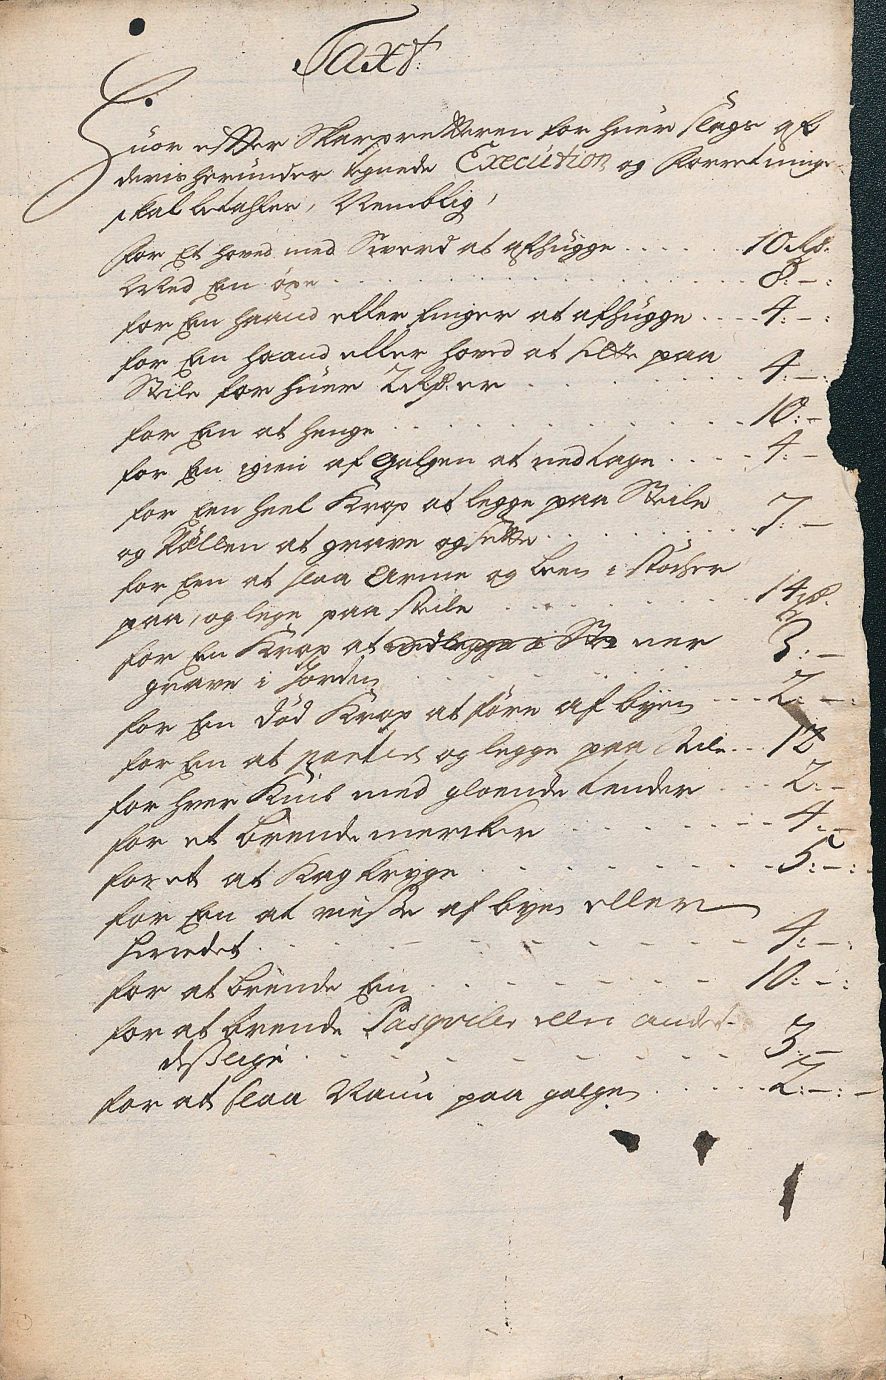 Taxt
Huor effter Skarpretteren for huer slags af
deris herunder tegnede Execution og Forretninge
skal betahles, Nemblig,
for Et hoved med Sverd at afhugge . . . . . 10 Rd.
Med En öxe . . . . . 8:-:
for En haand eller finger at afhugge . . . . 4:-:
for En haand eller hoved at sette paa
Steile for huer 2 Rd. er . . . . . 4:-:
for En at henge . . . . . 10:-
for En igien af Galgen at nedtage . . . . 4:-
for Een heel Krop at legge paa Steile
og Pællen at grave og sette . . . . . 7:-
for Een at slaa Arme og been i støcher
paa, og lege paa steile . . . . . 14 Rd.
for En Krop at ner
grave i Jorden . . . . . 3:-
for En död Krop at före af byen . . . 2:-:
for En at partere og legge paa Steile . . 12
for hver Knib med gloende tenger . . . 2:-
for et brende mercke . . . . . 4:-
for et at Kagstryge . . . . . 5:-:
for En at viese af byen eller
herredet . . . . . 4:-:
for at brende En . . . . . 10:-:
for at brende Pasqviler eller andet
desslige . . . . . 3:-
for at slaa Navn paa galgen . . . . . 2:-:-